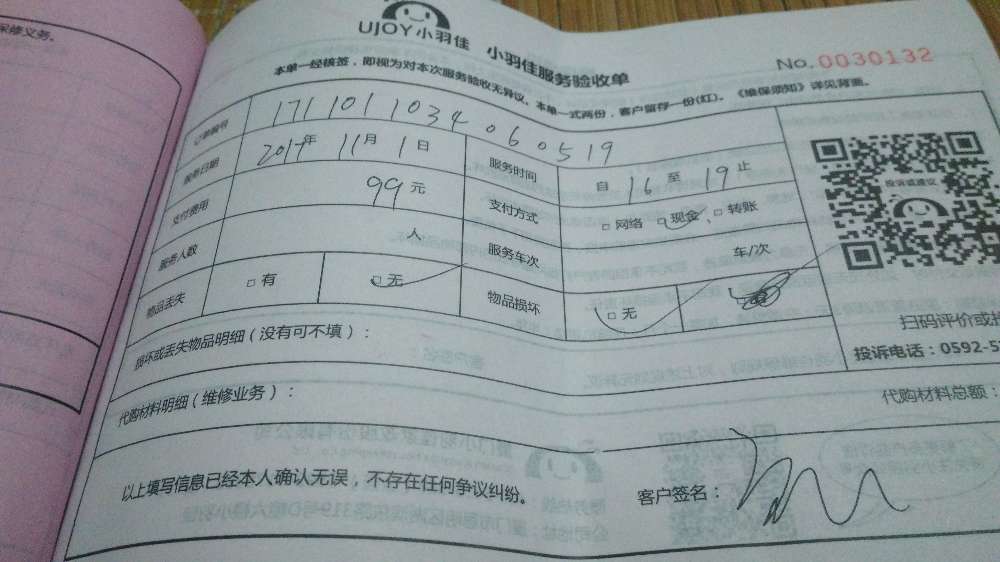 保修义务。
UJOY小羽佳 小羽佳服务验收单
No.0030132
本单一经核签，即视为对本次服务验收无异议。本单一式两份，客户留存一份(红)。《维保须知》详见背面。
订单编号 1711011034060519
服务日期 2017年 11月 1日 服务时间 自 16 至 19 止
支付费用 99元 支付方式 □网络 □现金、□转账
服务人数 人 服务车次 车/次
物品丢失 □有 □无 物品损坏 □无
投诉或建议
扫码评价或投
投诉电话：0592-5
损坏或丢失物品明细（没有可不填）：
代购材料明细（维修业务）：
代购材料总额：
以上填写信息已经本人确认无误，不存在任何争议纠纷。
客户签名：